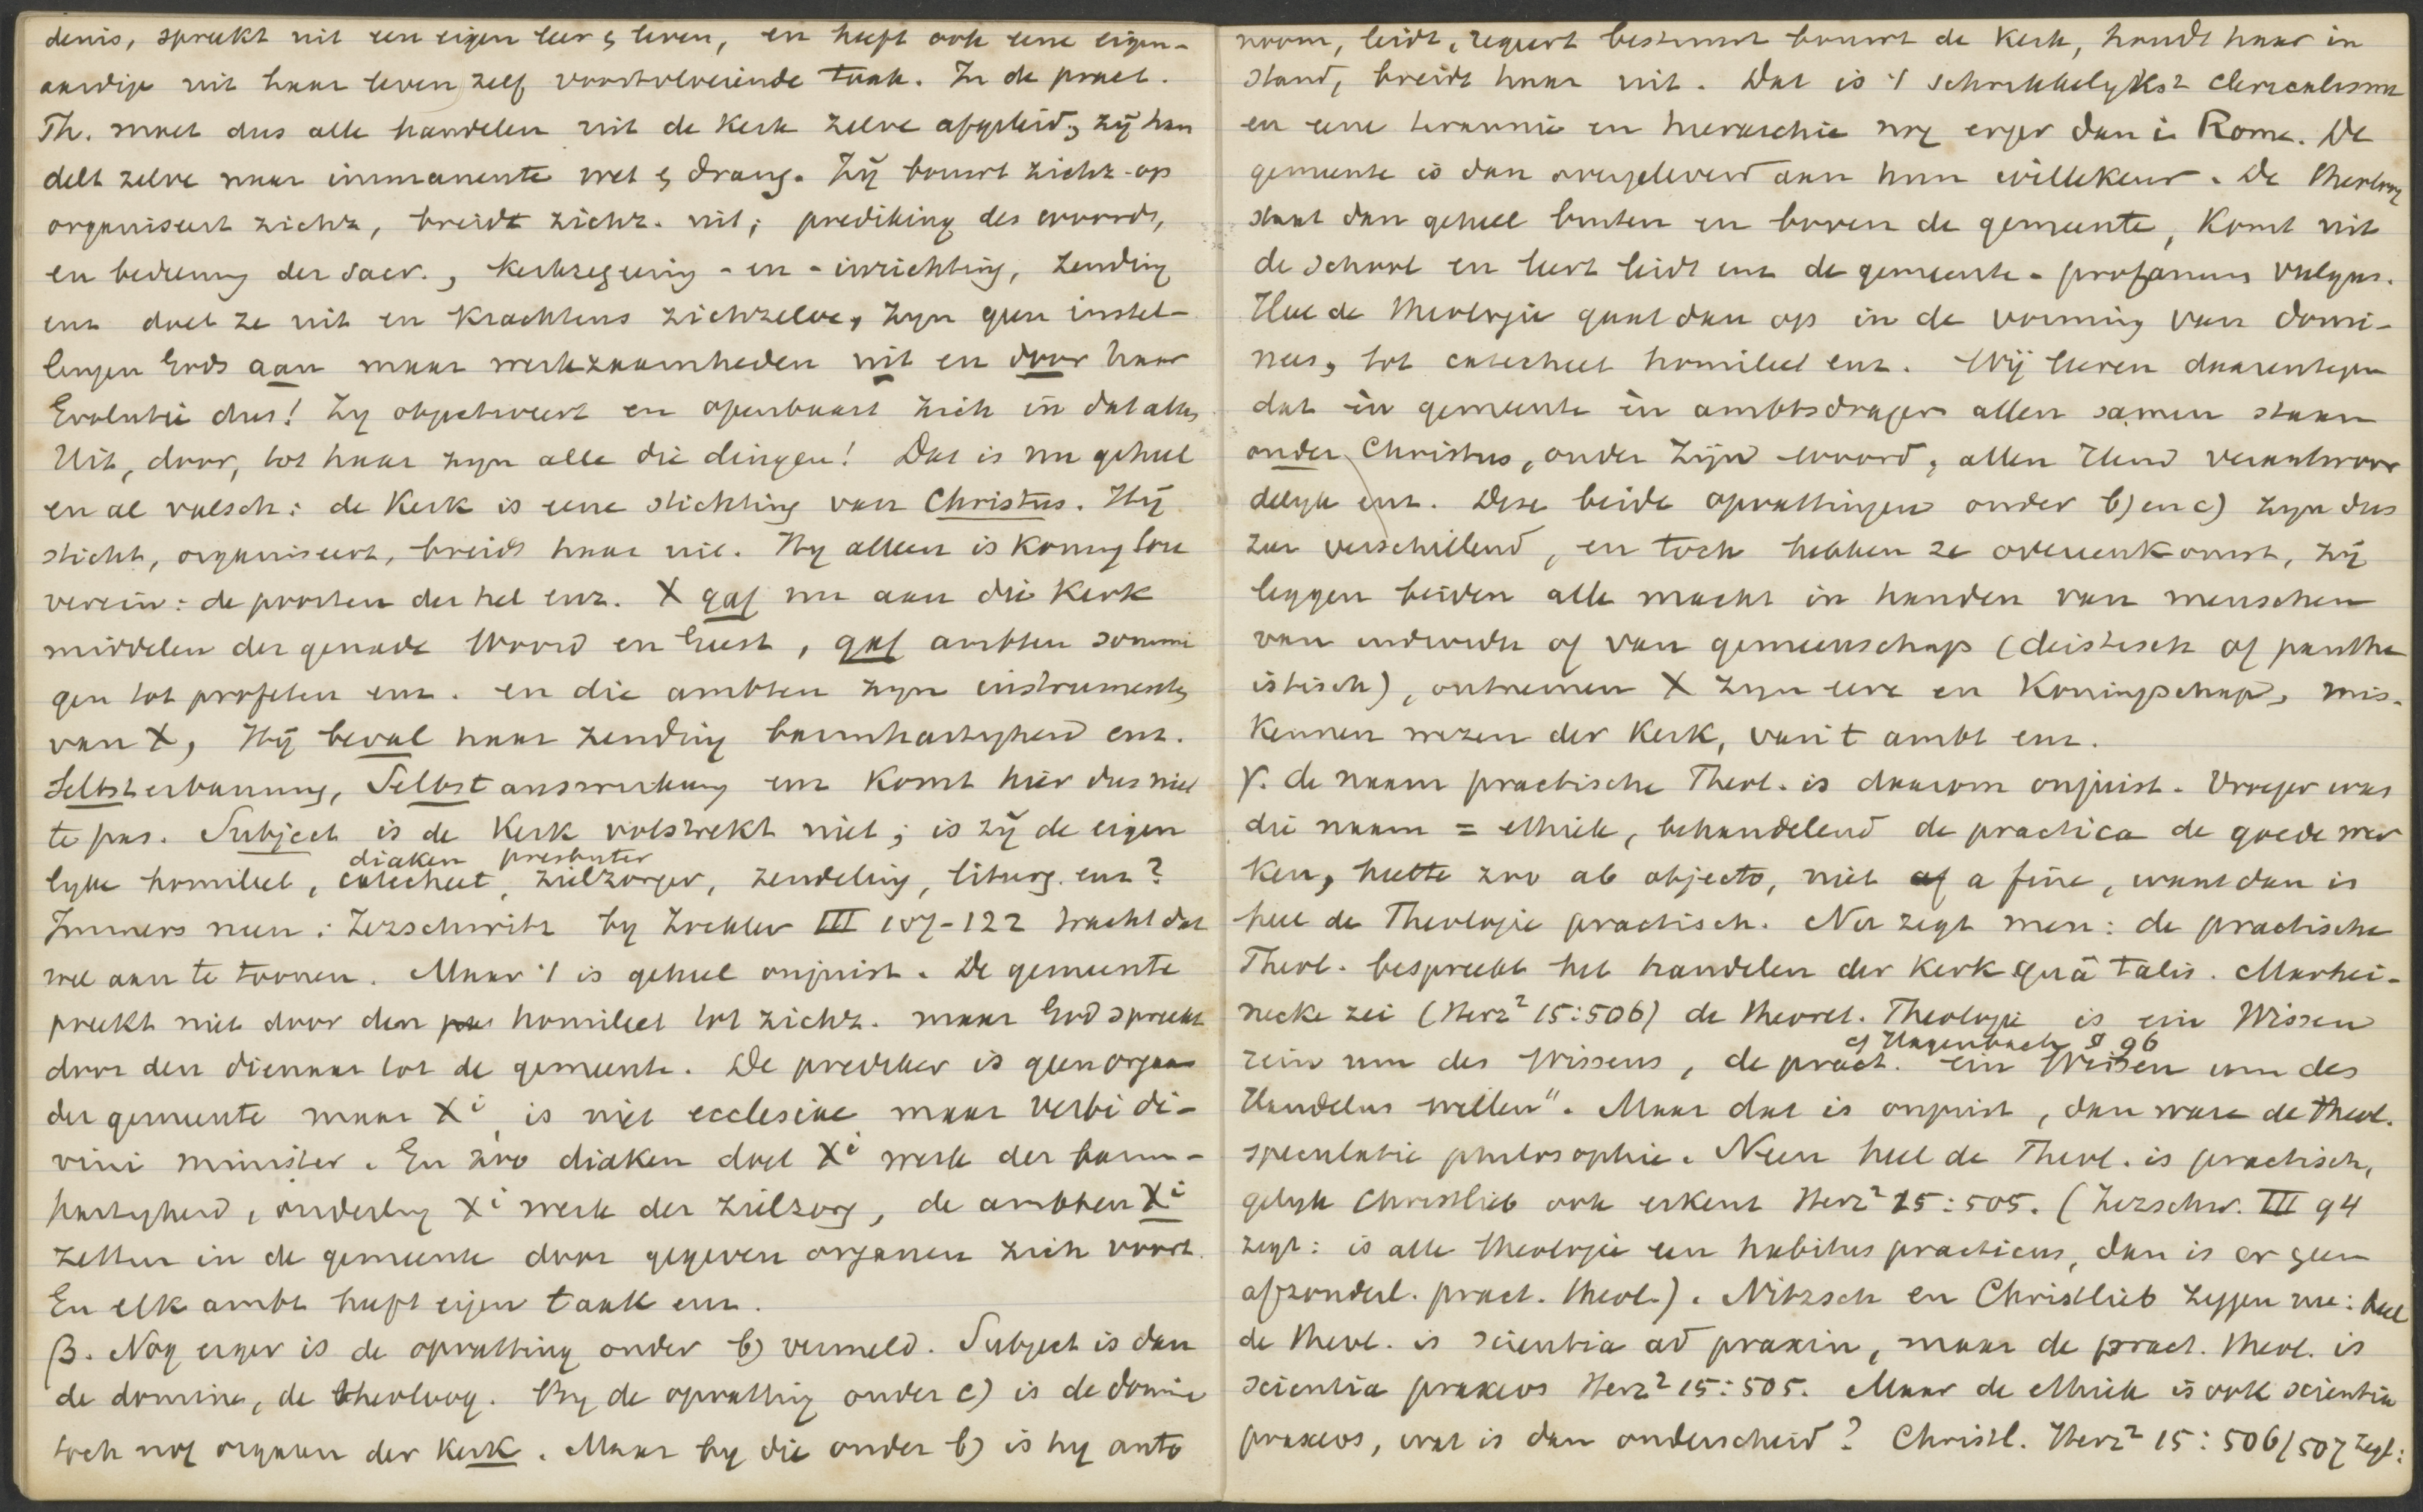 denis, spreekt uit een eigen leer & leven, en heeft ook eene eigen-
aardige uit haar leven zelf voortvloeiende taak. In de pract.
Th. moet dus alle handelen uit de Kerk zelve afgeleid, zij han
delt zelve naar immanente wet & drang. Zij bouwt zichz. op
organiseert zichz, breidt zichz. uit; prediking des woords,
en bediening der sacr., Kerkregeering - en - inrichting, zending
enz doet ze uit en krachtens zichzelve, zyn geen instel-
lingen Gods aan maar werkzaamheden uit en door haar
Evolutie dus! Zy objectiveert en openbaart zich in dat alles
Uit, door, tot haar zyn alle die dingen! Dat is nu geheel
en al valsch: de Kerk is eene stichting van Christus. Hij
sticht, organiseert, breidt haar uit. Hy alleen is Koning
verein: de poorten der hel enz. X gaf nu aan die Kerk
middelen der genade Woord en Geest, gaf ambten sommi
gen tot profeten enz. en die ambten zyn instruments
van X, Hij beval haar zending barmhartigheid enz.
Selbsterbauung, Selbstauswirkung enz komt hier dus niet
te pas. Subject is de Kerk volstrekt niet; is zij de eigen
diaken presbyter
lyke homileet, catecheet, zielzorger, zendeling, liturg. enz?
Immers neen: Zezschwitz by Zockler III 107-122 tracht dat
wel aan te toonen. Maar 't is geheel onjuist. De gemeente
preekt niet door den homileet tot zichz. maar God spreekt
door den dienaar tot de gemeente. De prediker is geen orgaan
der gemeente maar Xi, is niet ecclesiae maar verbi di-
vini minister. En zoo diaken doet Xi werk der barm-
hartigheid, ouderling Xi werk der zielzorg, de ambten Xi
zetten in de gemeente door gegeven organen zich voort.
En elk ambt heeft eigen taak enz.
β. Nog erger is de opvatting onder b) vermeld. Subject is dan
de domine, de theoloog. By de opvatting onder c) is de domine
toch nog orgaan der Kerk. Maar by die onder b) is hy auto
noom, leidt, regeert bestuurt bouwt de Kerk, houdt haar in
stand, breidt haar uit. Dat is 't schrikkelykst clericalisme
en eene tirannie en hierarchie nog erger dan in Rome. De
gemeente is dan overgeleverd aan hun willekeur. De theoloog
staat dan geheel buiten en boven de gemeente, komt uit
de school en leert leidt enz de gemeente - profanum vulgus.
Heel de theologie gaat dan op in de vorming van domi-
nees, tot catecheet homileet enz. Wij leeren daarentegen
dat èn gemeente èn ambtsdragers allen samen staan
onder Christus, onder Zijn woord, allen Hem verantwoor
delyk enz. Deze beide opvattingen onder b) en c) zyn dus
zeer verschillend, en toch hebben ze overeenkomst, zij
leggen beiden alle macht in handen van menschen
van individu of van gemeenschap (deistisch of panthe
istisch), ontnemen X zyn eere en Koningschap, mis-
kennen wezen der Kerk, van 't ambt enz.
γ. de naam practische Theol. is daarom onjuist. Vroeger was
die naam = ethiek, behandelend de practica de goede wer
ken, heette zoo ab objecto, niet a fine, want dan is
heel de Theologie practisch. Nu zegt men: de practische
Theol. bespreekt het handelen der Kerk quâ talis. Marhei-
necke zei (Herz² 15:506) de theoret. Theologie is ein Wissen
cf Hagenbach § 96
rein um des Wissens, de pract. ein Wissen um des
Handelns willen". Maar dat is onjuist, dan ware de theol.
speculatie philosophie. Neen heel de Theol. is practisch,
gelyk Christlieb ook erkent Herz² 15:505. (Zezschw. III 94
zegt: is alle theologie een habitus practicus, dan is er geen
afzonderl. pract. theol.). Nitzsch en Christlieb zeggen nu: heel
de theol. is scientia ad praxin, maar de pract. theol. is
scientia praxeos Herz² 15:505. Maar de ethiek is ook scientia
praxeos, wat is dan onderscheid? Christl. Herz² 15:506/507 zegt: